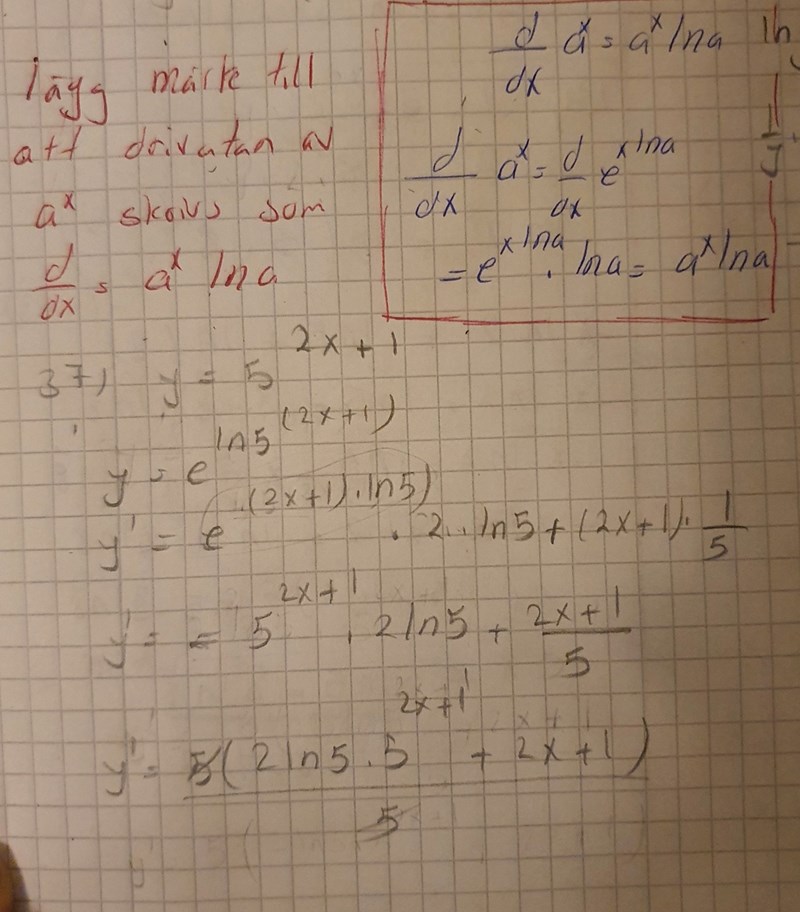 lägg märke till
att drivatan av
a^x skrivs som
d/dx = a^x ln a
d/dx a^x = a^x ln a
d/dx a^x = d/dx e^(x ln a)
= e^(x ln a) · ln a = a^x ln a
37) y = 5^(2x+1)
y = e^(ln 5^(2x+1))
y' = e^((2x+1)·ln5) · 2 · ln5 + (2x+1) · 1/5
y' = = 5^(2x+1) · 2 ln5 + (2x+1)/5
y' = 5(2 ln5 · 5^(2x+1) + 2x+1)/5